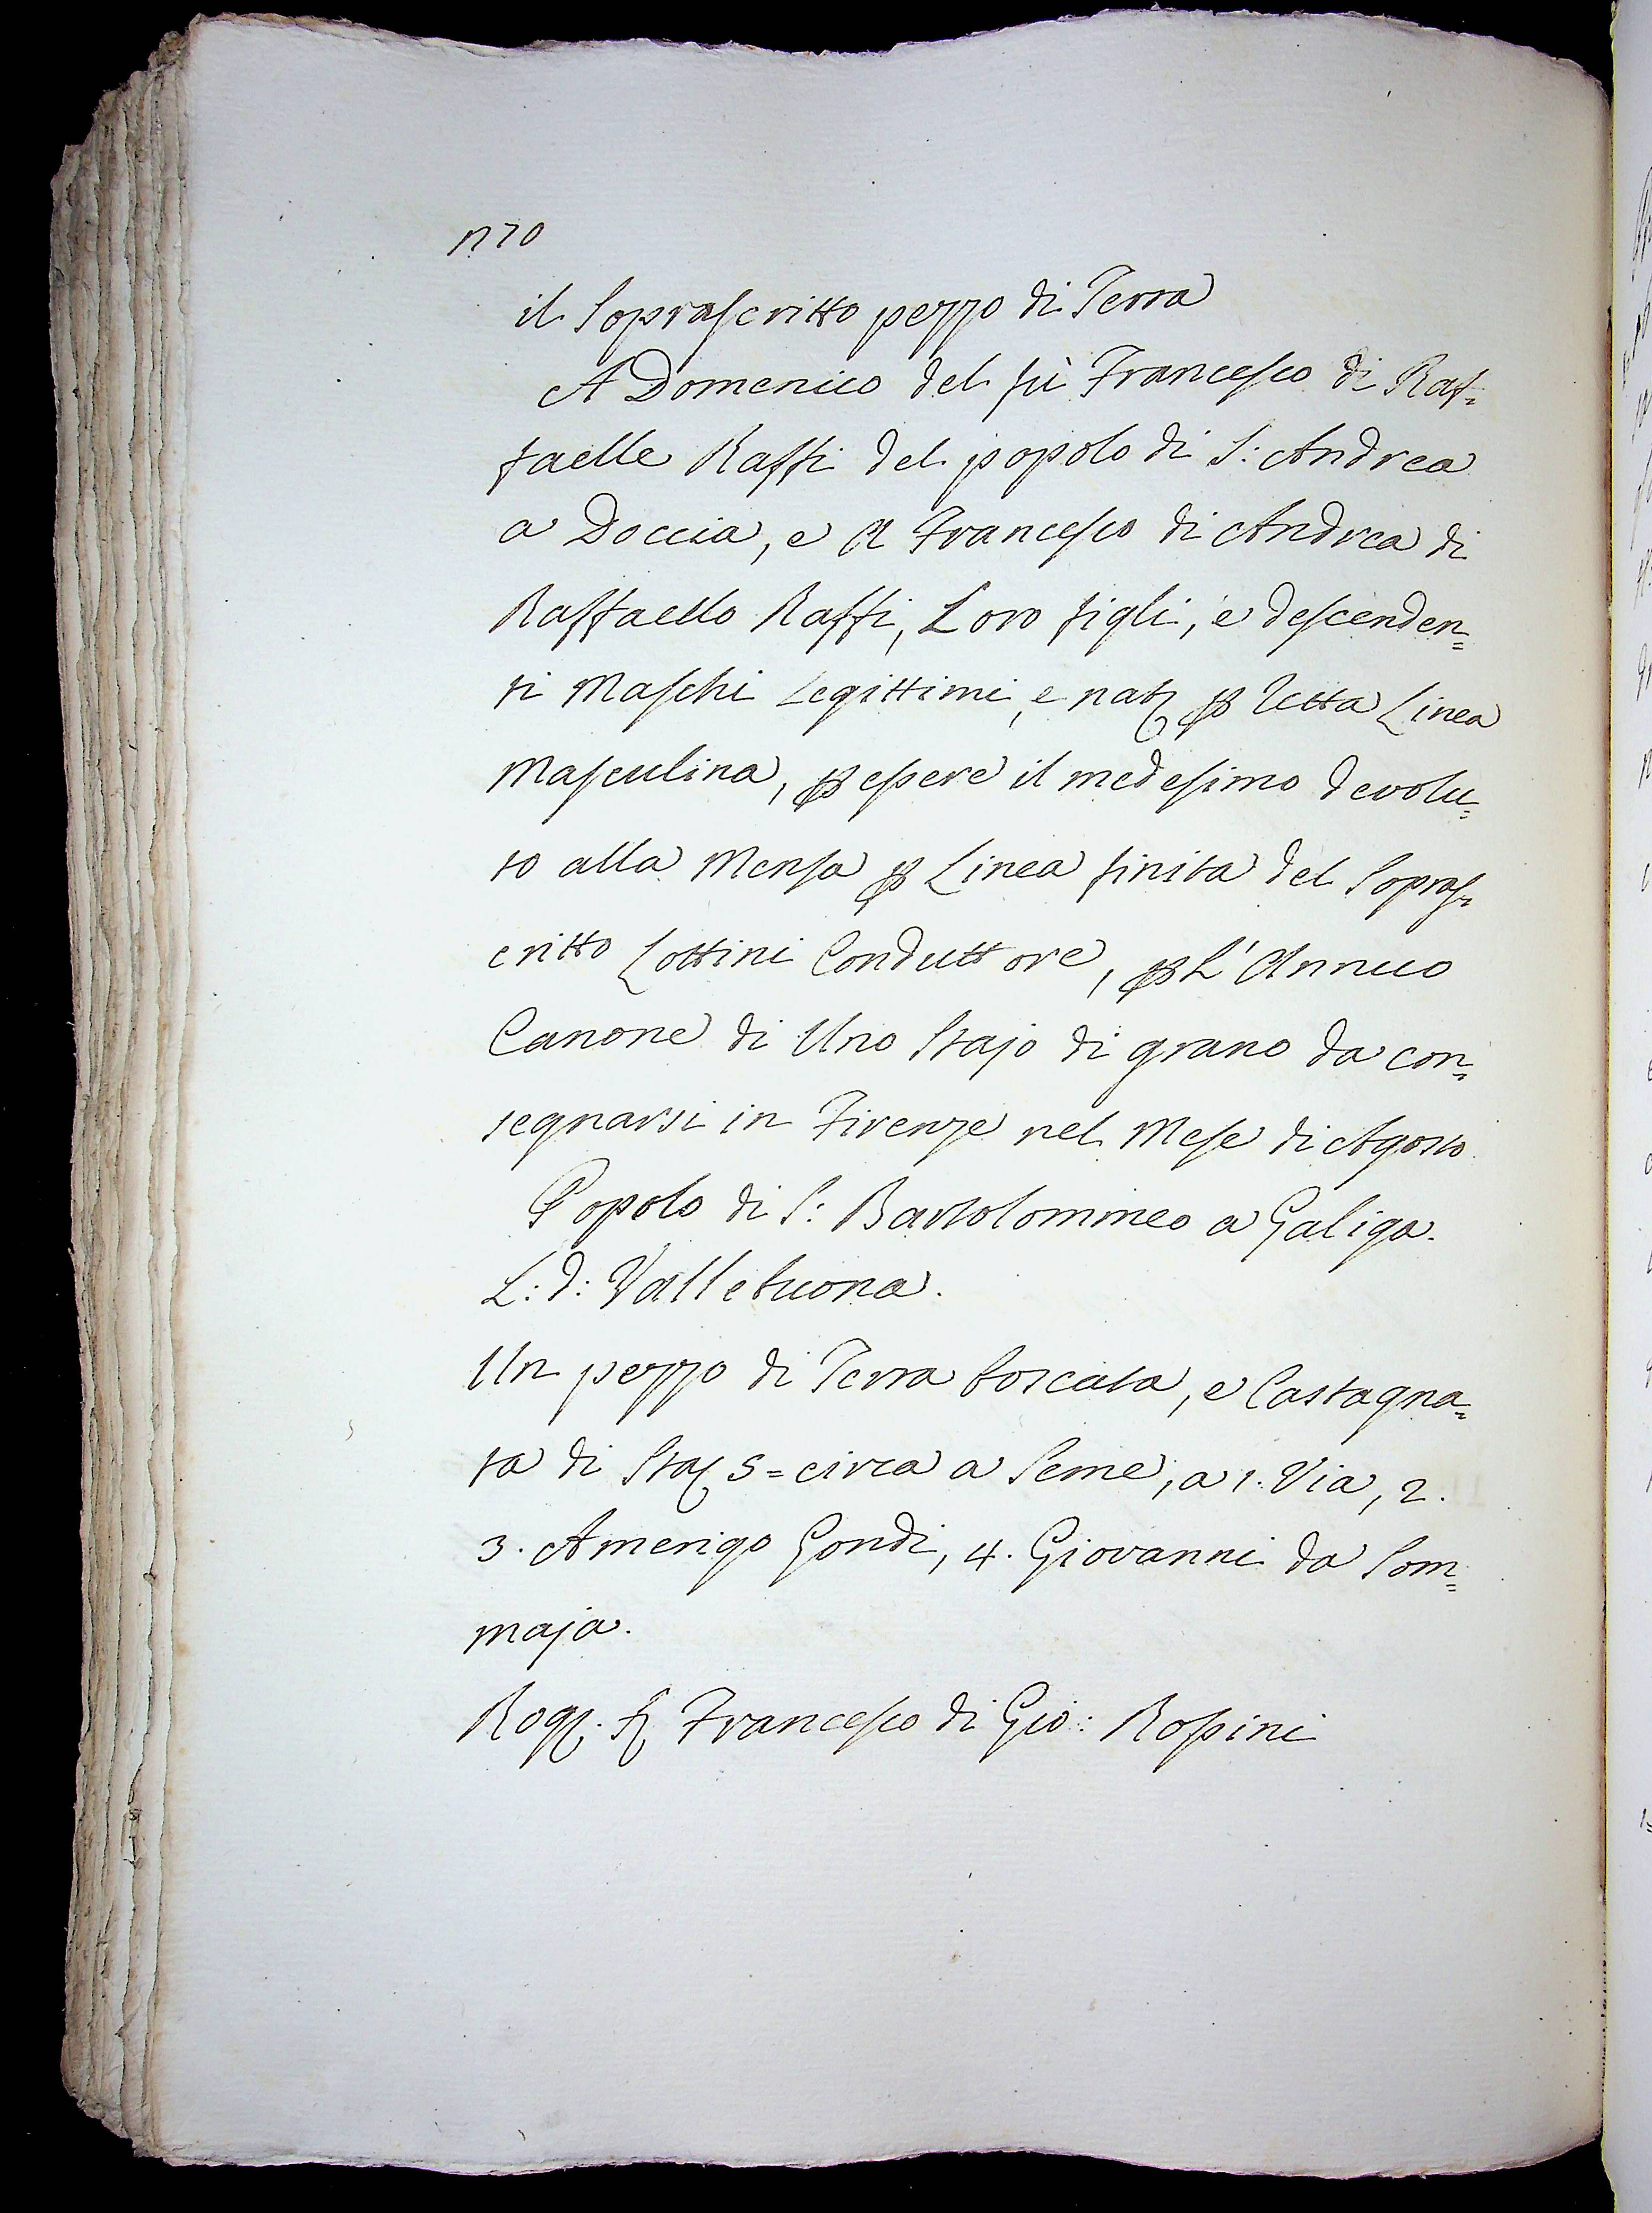 1770
il Soprascritto pezzo di Terra
A Domenico del fù Francesco di Raf=
faelle Raffi del popolo di S: Andrea
a Doccia, e A Francesco di Andrea di
Raffaello Raffi, Loro figli, e descenden=
ti Maschi Legittimi, e nat: p retta Linea
Masculina, p essere il medesimo devolu=
to alla Mensa p Linea finita del Sopras=
critto Lottini Conduttore, p L'Annuo
Canone di Uno Stajo di grano da con=
segnarsi in Firenze nel Mese di Agosto
Popolo di S: Bartolommeo a Galiga.
L: d: Vallebuona.
Un pezzo di Terra boscata, e Castagna=
ta di Staj 5= circa a Seme, a 1. Via, 2.
3. Amerigo Gondi, 4. Giovanni da Som=
maja.
Rog: S: Francesco di Gio: Rossini